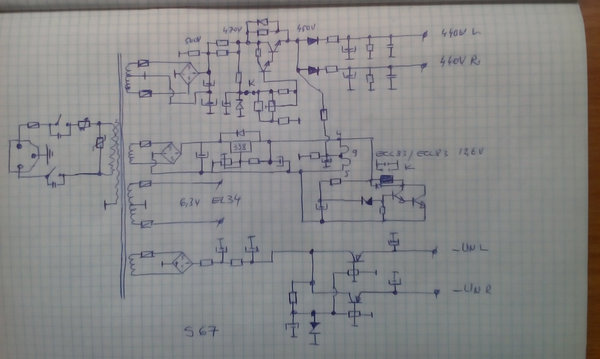 500V 470V 450V
440V L
K
440V R
4
338
9
ECL83/ECC83 12,6V
5
K
6,3V EL34
-UN L
-UN R
S67